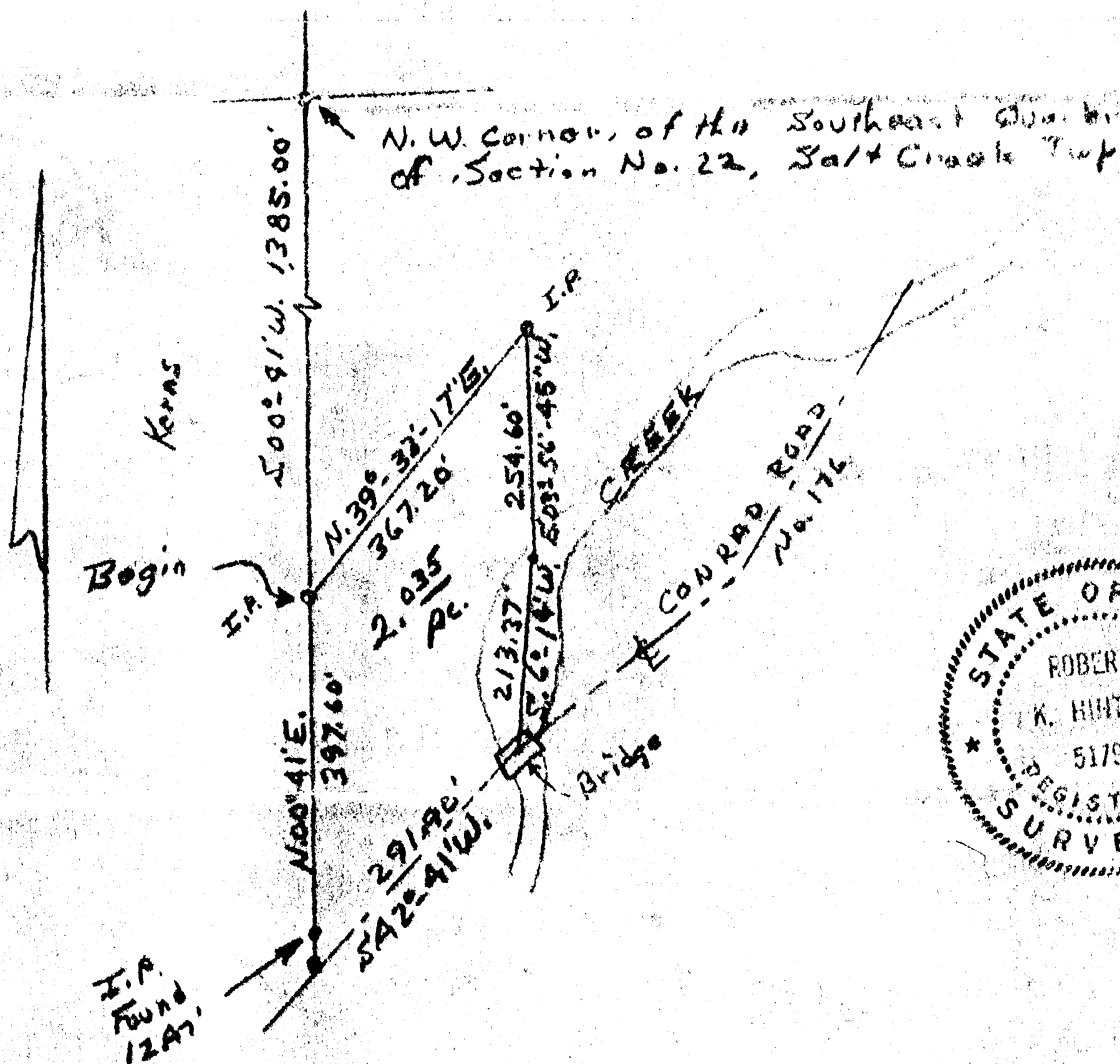 N.W. Corner, of the Southeast
of Section No. 22, Salt Creek Twp
S.00°-41'W. 1,385.00'
Kerns
I.P.
N.39°-33'-17"E.
367.20'
254.60'
S.03°-56'-45"W.
CREEK
CONRAD ROAD
No. 176
Begin
I.P.
2.035
Ac.
213.37'
S.6°-14'W.
N.00°41'E.
397.60'
Bridge
291.90'
S42°-41'W.
I.P.
Found
STATE OF
ROBER
K.
5179
REGIST
SURVE